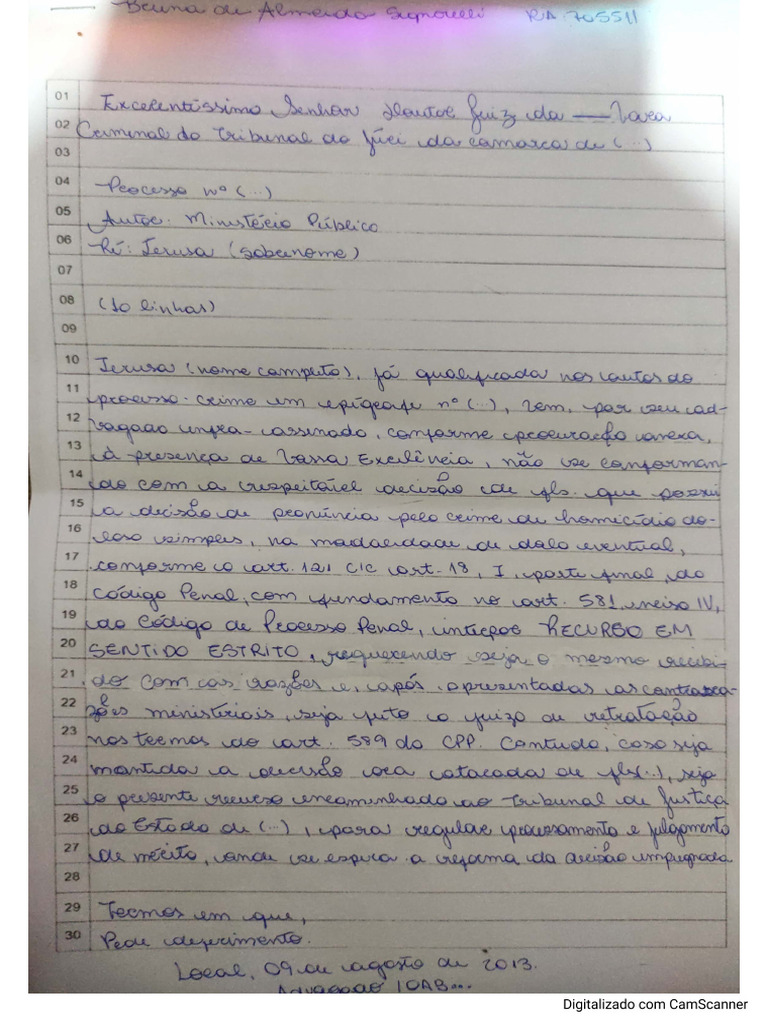 Bruna de Almeida Signorelli RA 705511
01 Excelentíssimo Senhor Doutor Juiz da — Vara
02 Criminal do Tribunal do Júri da comarca de (...)
03
04 Processo nº (...)
05 Autor: Ministério Público
06 Ré: Jerusa (sobrenome)
07
08 (10 linhas)
09
10 Jerusa (nome completo), já qualificada nos autos do
11 processo-crime em epígrafe nº (...), vem, por seu ad-
12 vogado infra-assinado, conforme procuração anexa,
13 à presença de Vossa Excelência, não se conforman-
14 do com a respeitável decisão de fls. que
15 a decisão de pronúncia pelo crime de homicídio do-
16 loso simples, na modalidade de dolo eventual,
17 conforme o art. 121 c/c art. 18, I, parte final, do
18 Código Penal, com fundamento no art. 581, inciso IV,
19 do Código de Processo Penal, interpor RECURSO EM
20 SENTIDO ESTRITO, requerendo seja o mesmo recebi-
21 do com as razões e, após apresentadas as contrarra-
22 zões ministeriais, seja feito o juízo de retratação
23 nos termos do art. 589 do CPP. Contudo, caso seja
24 mantida a decisão ora atacada de fls(...), seja
25 o presente recurso encaminhado ao Tribunal de Justiça
26 do Estado de (...), para regular processamento e julgamento
27 de mérito, onde se espera a reforma da decisão impugnada
28
29 Termos em que,
30 Pede deferimento.
Local, 09 de agosto de 2013.
Advogado /OAB...
Digitalizado com CamScanner